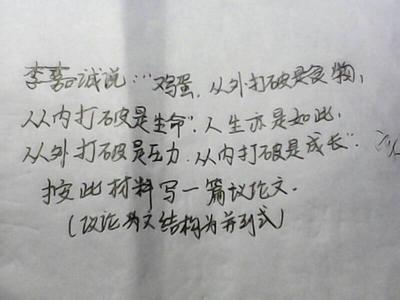 李嘉诚说:“鸡蛋,从外打破是食物,
从内打破是生命”.人生亦是如此,
从外打破是压力,从内打破是成长”.
按此材料写一篇议论文.
(议论为文结构为并列式)